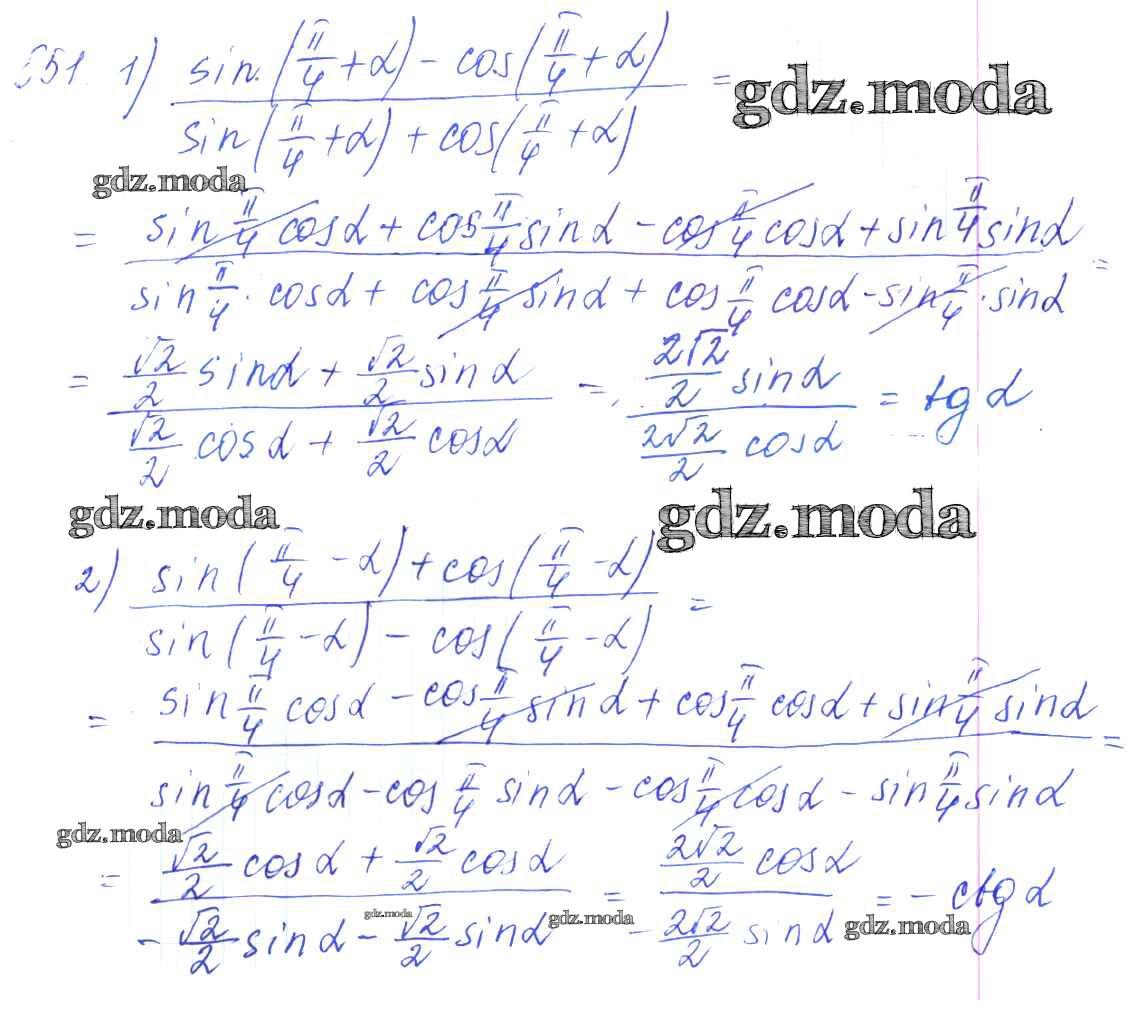 551 1) (sin(π/4 + α) − cos(π/4 + α)) / (sin(π/4 + α) + cos(π/4 + α)) =
gdz.moda
gdz.moda
= (sin π/4 cosα + cos π/4 sinα − cos π/4 cosα + sin π/4 sinα) / (sin π/4 · cosα + cos π/4 sinα + cos π/4 cosα − sin π/4 · sinα) =
= (√2/2 sinα + √2/2 sinα) / (√2/2 cosα + √2/2 cosα) = (2√2/2 sinα) / (2√2/2 cosα) = tgα
gdz.moda
gdz.moda
2) (sin(π/4 − α) + cos(π/4 − α)) / (sin(π/4 − α) − cos(π/4 − α)) =
= (sin π/4 cosα − cos π/4 sinα + cos π/4 cosα + sin π/4 sinα) / (sin π/4 cosα − cos π/4 sinα − cos π/4 cosα − sin π/4 sinα) =
gdz.moda
= (√2/2 cosα + √2/2 cosα) / (−√2/2 sinα − √2/2 sinα) = (2√2/2 cosα) / (−2√2/2 sinα) = −ctgα
gdz.moda
gdz.moda
gdz.moda